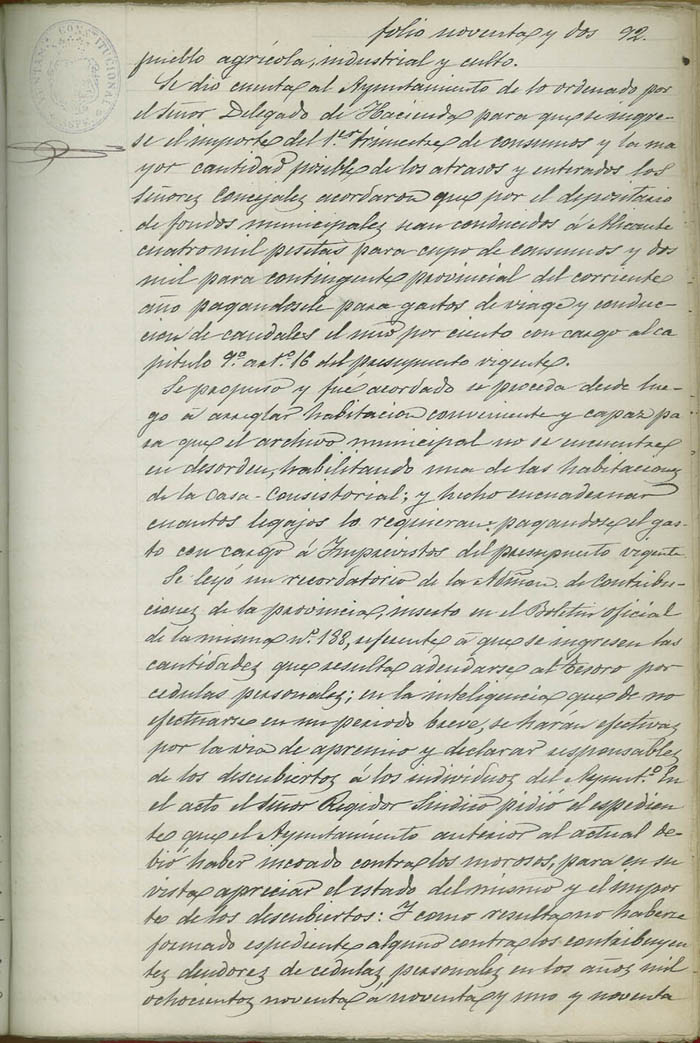 folio noventa y dos 92.
AYUNTAMTO CONSTITUCIONAL ASPE
pueblo agrícola, industrial y culto.
Se dio cuenta al Ayuntamiento de lo ordenado por
el señor Delegado de Hacienda para que se ingre-
se el importe del 1.er trimestre de consumos y la ma
yor cantidad posible de los atrasos y enterados los
señores Concejales acordaron que por el depositario
de fondos municipales sean conducidos á Alicante
cuatro mil pesetas para cupo de consumos y dos
mil para contingente provincial del corriente
año pagandosele para gastos de viage y conduc-
cion de caudales el uno por ciento con cargo al ca
pitulo 9.º art.º 16 del presupuesto vigente.
Se propuso y fué acordado se proceda desde lue-
go á arreglar habitacion conveniente y capaz pa
ra que el archivo municipal no se encuentre
en desorden, habilitando una de las habitaciones
de la Casa-Consistorial; y hecho encuadernar
cuantos legajos lo requieran: pagandose el gas-
to con cargo á Imprevistos del presupuesto vigente
Se leyó un recordatorio de la Admon. de Contribu-
ciones de la provincia, inserto en el Boletin oficial
de la misma n.º 138, referente á que se ingresen las
cantidades que resulta adeudarse al Tesoro por
cedulas personales; en la inteligencia, que de no
efectuarse en un periodo breve, se haran efectivas
por la via de apremio y declarar responsables
de los descubiertos á los individuos del Ayunt.º En
el acto el señor Regidor Sindico pidió el espedien
te que el Ayuntamiento anterior al actual de-
bió haber incoado contra los morosos, para en su
vista apreciar el estado del mismo y el impor
te de los descubiertos: Y como resulta no haberse
formado espediente alguno contra los contribuyen
tes deudores de cédulas personales en los años mil
ochocientos noventa á noventa y uno y noventa